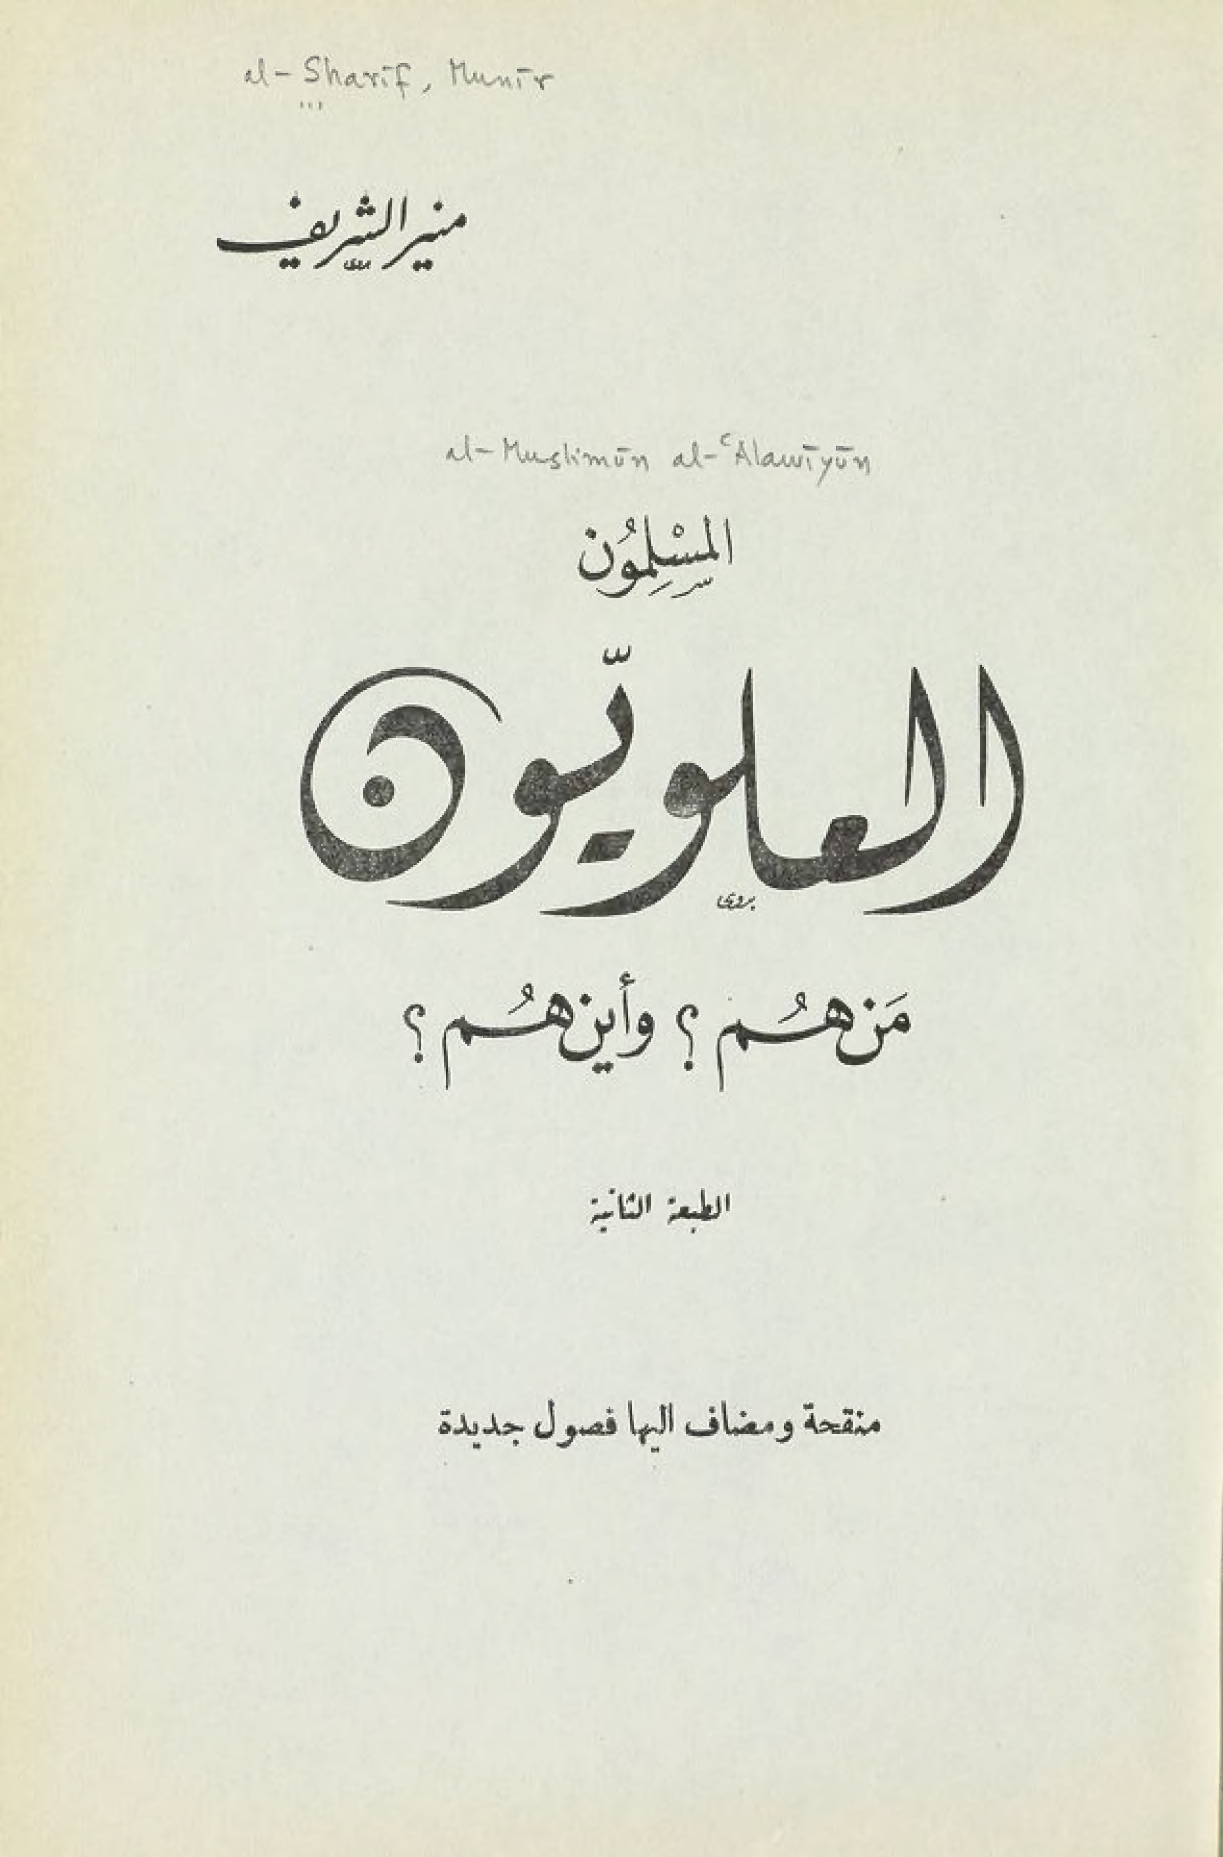 al-Sharīf, Munīr
منير الشريف
al-Muslimūn al-ʿAlawīyūn
المسْلِمُون
العلويّون
بدوي
مَن هُم ؟ وأين هُم ؟
الطبعة الثانية
منقحة ومضاف اليها فصول جديدة